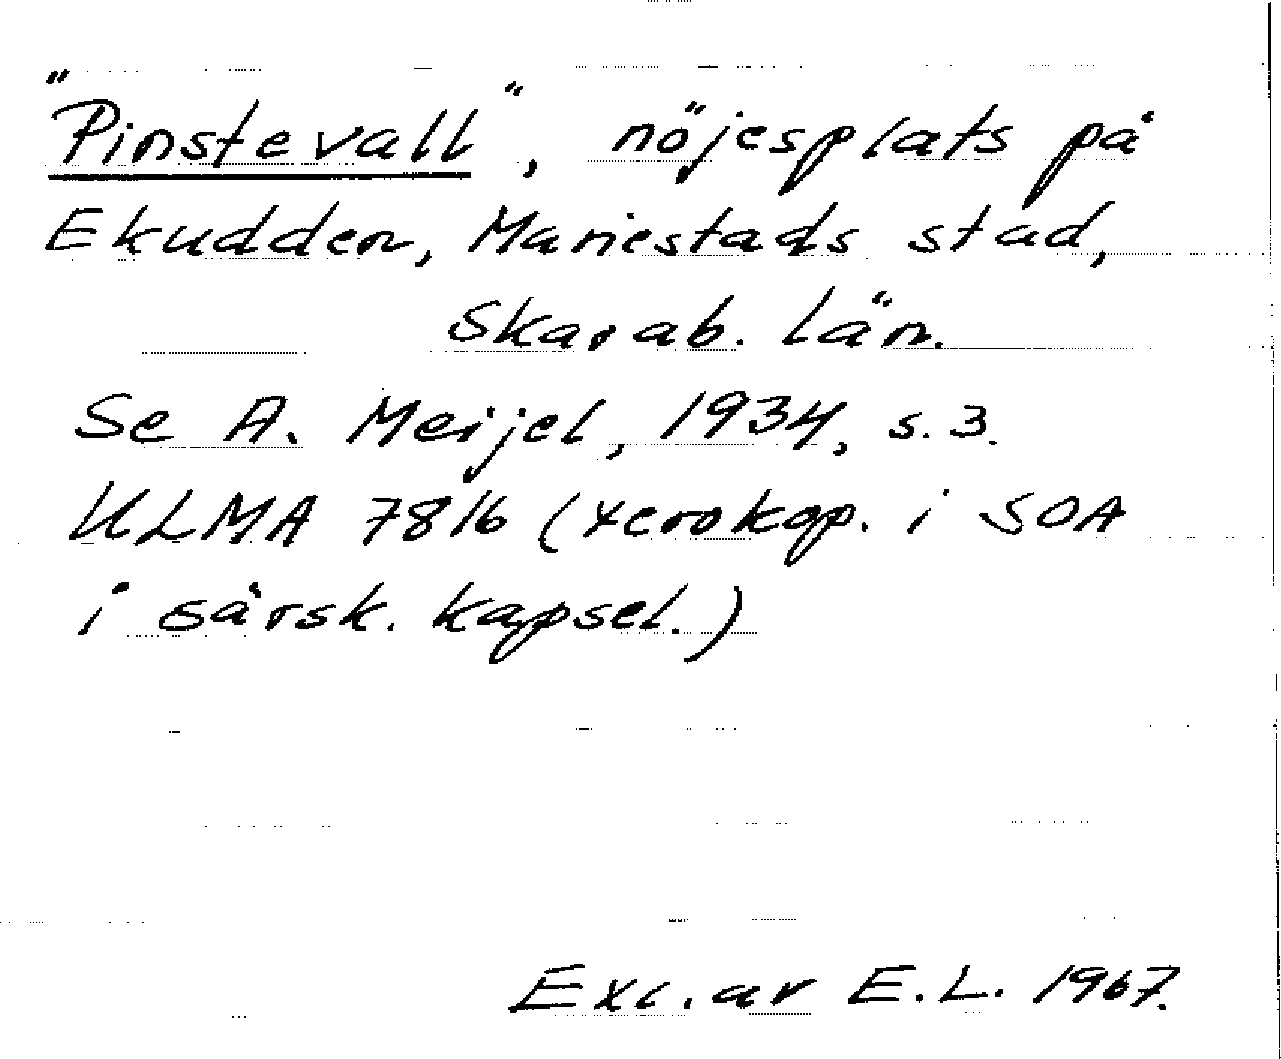 "Pinstevall", nöjesplats på
Ekudden, Mariestads stad,
Skarab. län.
Se A. Meijel, 1934, s. 3.
ULMA 7816 (xerokop. i SOA
i särsk. kapsel.)
Exc. av E.L. 1967.